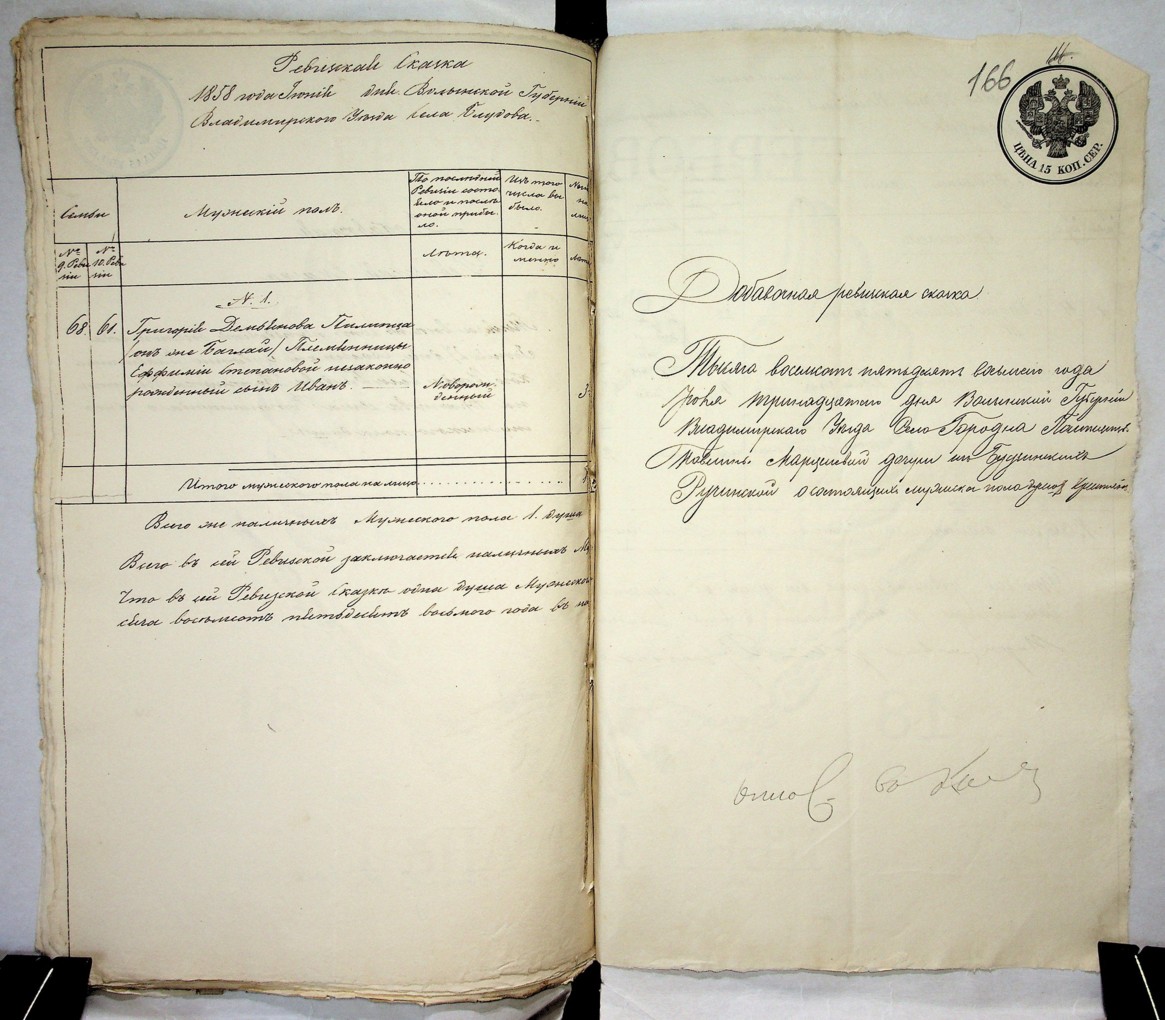 Ревизкаѣ Сказка
1858 года Іюнѣ днѣ Волынской Губерніи
Владимирского Уѣзда села Блудова.
Семьи
Мужескій полъ.
По послѣдней Ревизіи состояло и послѣ оной прибыло.
Изъ того числа выбыло.
№ 9. Ревизіи
№ 10. Ревизіи
Лѣта.
Когда именно
№. 1.
68. 61. Григорій Демьянова Пилипца
/онъ же Баглай/ Племянницы
Еффиміи Степановой незаконно
рожденный сынъ Иванъ. Новорожденный
Итого мужеского пола на лицо
Всего же наличныхъ Мужеского пола 1. душа
Всего въ сей Ревизской заключается наличныхъ
Что въ сей Ревизской Сказкѣ одна душа Мужеского
сяча восемьсотъ пятьдесятъ восьмого года въ
166
ЦѢНА 15 КОП. СЕР.
Добавочная ревизская сказка
Тысяча восемсотъ пятьдесятъ восьмого года
Іюня тринадцатого дня Волынской Губерніи
Владимирского Уѣзда Село Городна Помѣщицы
дочери
Ручинской о состоящихъ мужеска пола